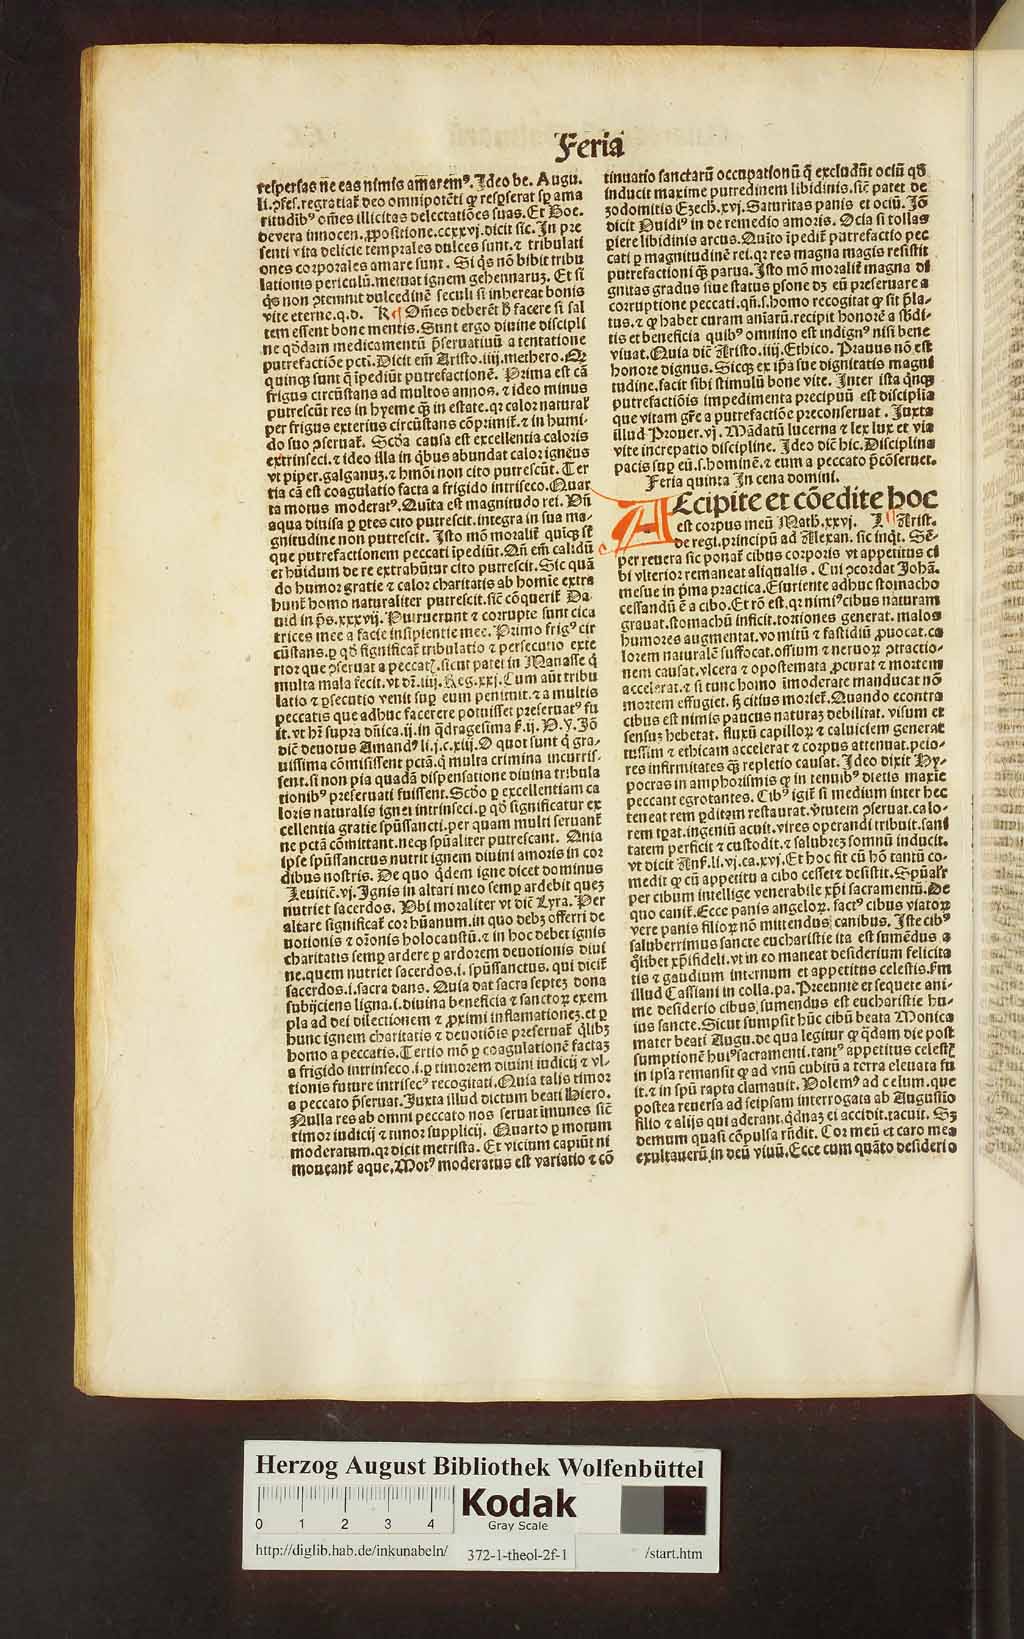 Feria
respersas ne eas nimis amaremꝰ. Ideo be. Augu.
li. ꝯfes. regratiat̉ deo omnipotēti ꝙ resꝑserat sꝑ ama
ritudibꝰ om̄es illicitas delectatiōes suas. Et Boe.
de vera innocen. ꝓpositione. ccxxvj. dicit sic. In pre
senti vita delicie temꝑales dulces sunt. ⁊ tribulati
ones corporales amare sunt. Si q̄s nō bibit tribu
lationis periculū. metuat ignem gehennaruꝫ. Et si
q̄s non ꝯtemnit dulcedinē seculi si inhereat bonis
vite eterne. q. d. R̄ ¶ Om̄es deberēt ħ facere si sal
tem essent bone mentis. Sunt ergo diuine discipli
ne q̄dam medicamentū p̄seruatiuū a tentatione
putrefactiōe pctī. Dicit em̄ Aristo. iiij. methero. Qꝛ
quinqꝫ sunt q̄ īpediūt putrefactionē. Prima est cā
frigus circūstans ad multos annos. ⁊ ideo minus
putrescūt res in hyeme q̄ꝫ in estate. qꝛ calor natural̉
per frigus exterius circūstans cōprimit̉. ⁊ in humi-
do suo ꝯseruat̉. Scd̄a causa est excellentia caloris
extrinseci. ⁊ ideo illa in q̄bus abundat calor igneus
vt piper. galganuꝫ. ⁊ hmōi non cito putrescūt. Ter
tia cā est coagulatio facta a frigido intriseco. Quar
ta motus moderatꝰ. Quīta est magnitudo rei. Vn̄
aqua diuisa ꝑ ꝑtes cito putrescit. integra in sua ma-
gnitudine non putrescit. Isto mō moralit̉ quīqꝫ st̄
que putrefactionem peccati īpediūt. Qn̄ em̄ calidū
et hūidum de re extrahūtur cito putrescit. Sic quā
do humor gratie ⁊ calor charitatis ab homīe extra
hunt̉ homo naturaliter putrescit. sic̄ cōquerit̉ Da
uid in p̄s. xxxvij. Putruerunt ⁊ corrupte sunt cica
trices mee a facie insipientie mee. Primo frigꝰ cir
cūstans. ꝑ qd̄ significat̉ tribulatio ⁊ persecutio exte
rior que ꝯseruat a peccat̉. sicut patet in Manasse q̄
multa mala fecit. vt dr̄. iiij. Reg. xxj. Cum aūt tribu
latio ⁊ ꝑsecutio venit suꝑ eum penituit. ⁊ a multis
peccatis que adhuc facerere potuisset preseruatꝰ fu
it. vt hr̄ supra dn̄ica. ij. in q̄dragesima ẜ. ij. P. y. Jō
dic̄ deuotus Amandꝰ li. j. c. xiij. O quot sunt q̄ gra-
uissima cōmisissent pctā. q̄ multa crimina incurris-
sent. si non pia quadā dispensatione diuina tribula
tionibꝰ preseruati fuissent. Scd̄o ꝑ excellentiam ca
loris naturalis ignei intrinseci. ꝑ qd̄ significatur ex
cellentia gratie spūssancti. per quam multi seruant̉
ne pctā cōmittant. neqꝫ spūaliter putrescant. Quia
ipse spūssanctus nutrit ignem diuini amoris in cor
dibus nostris. De quo q̄dem igne dicet dominus
Leuitic̄. vj. Ignis in altari meo semꝑ ardebit queꝫ
nutriet sacerdos. Vbi moraliter vt dic̄ Lyra. Per
altare significat̉ cor hūanum. in quo debꝫ offerri de
uotionis ⁊ or̄onis holocaustū. ⁊ in hoc debet ignis
charitatis semꝑ ardere ꝑ ardorem deuotionis diui
ne. quem nutriet sacerdos. i. spūssanctus. qui dicit̉
sacerdos. i. sacra dans. Quia dat sacra septeꝫ dona
subijciens ligna. i. diuina beneficia ⁊ sanctoꝝ exem
pla ad dei dilectionem ⁊ ꝓximi inflamationeꝫ. et ꝑ
hunc ignem charitatis ⁊ deuotiōis preseruat̉ q̄libꝫ
homo a peccatis. Tertio mō ꝑ coagulationē factaꝫ
a frigido intrinseco. i. ꝑ timorem diuini iudicij ⁊ vl-
tionis future intrisecꝰ recogitati. Quia talis timor
a peccato p̄seruat. Juxta illud dictum beati Hiero.
Nulla res ab omni peccato nos seruat īmunes sic̄
timor iudicij ⁊ timor supplicij. Quarto ꝑ motum
moderatum. qꝛ dicit metrista. Et vicium capiūt ni
mouēant̉ aque. Motꝰ moderatus est variatio ⁊ cō
tinuatio sanctarū occupationū q̄ excludūt ociū qd̄
inducit maxime putredinem libidinis. sic̄ patet de
zodomitis Ezech̄. xvj. Saturitas panis et ociū. Jō
dicit Ouidiꝰ in de remedio amoris. Ocia si tollas
ꝑiere libidinis arcus. Quīto īpedit̉ putrefactio pec
cati ꝑ magnitudinē rei. qꝛ res magna magis resistit
putrefactioni q̄ꝫ parua. Isto mō moralit̉ magna di
gnitas gradus siue status ꝑsone dꝫ eū preseruare a
corruptione peccati. qn̄. s. homo recogitat ꝙ sit p̄la-
tus. ⁊ ꝙ habet curam aīarū. recipit honorē a sbd̄i-
tis et beneficia quibꝰ omnino est indignꝰ nisi bene
viuat. Quia dic̄ Aristo. iiij. Ethico. Prauus nō est
honore dignus. Sicqꝫ ex ip̄a sue dignitatis magni
tudine. facit sibi stimulū bone vite. Inter ista q̄nqꝫ
putrefactiōis impedimenta precipuū est disciplīa
que vitam gr̄e a putrefactiōe preconseruat. Juxta
illud Prouer. vj. Mādatū lucerna ⁊ lex lux et via
vite increpatio discipline. Ideo dic̄ hic. Disciplina
pacis suꝑ eū. s. hominē. ⁊ eum a peccato p̄cōseruet.
Feria quinta In cena domini.
ACcipite et cōedite hoc
est corpus meū Math̄. xxvj. ¶ Arist.
de regi. principū ad Alexan. sic inq̄t. Sē-
per reuera sic ponat̉ cibus corporis vt appetitus ci
bi vlterior remaneat aliqualis. Cui ꝯcordat Johā.
mesue in p̄ma practica. Esuriente adhuc stomacho
cessandū ē a cibo. Et rō est. qꝛ nimiꝰ cibus naturam
grauat. stomachū inficit. torsiones generat. malos
humores augmentat. vomitū ⁊ fastidiū ꝓuocat. ca
lorem naturalē suffocat. ossium ⁊ neruoꝝ ꝯtractio-
nem causat. vlcera ⁊ opostemata ꝓcurat ⁊ mortem
accelerat. ⁊ si tunc homo īmoderate manducat nō
mortem effugiet. sꝫ citius moriet̉. Quando econtra
cibus est nimis paucus naturaꝫ debilitat. visum et
sensuꝫ hebetat. fluxū capilloꝝ ⁊ caluiciem generat
tussim ⁊ ethicam accelerat ⁊ corpus attenuat. peio-
res infirmitates q̄ꝫ repletio causat. Ideo dixit Hy-
pocras in amphorismis ꝙ in tenuibꝰ dietis maxie
peccant egrotantes. Cibꝰ igit̉ si medium inter hec
teneat rem ꝑditam restaurat. v̄tutem ꝯseruat. calo-
rem tꝑat. ingeniū acuit. vires operandi tribuit. sani
tatem perficit ⁊ custodit. ⁊ salubreꝫ somnū inducit.
vt dicit Ans. li. vj. ca. xvj. Et hoc fit cū hō tantū co-
medit ꝙ cū appetitu a cibo cesset ⁊ desistit. Spūalr̄
per cibum intellige venerabile xp̄i sacramentū. De
quo canit̉. Ecce panis angeloꝝ. factꝰ cibus viatoꝝ
vere panis filioꝝ nō mittendus canibus. Iste cibꝰ
saluberrimus sancte eucharistie ita est sumēdus a
q̄libet xp̄ifideli. vt in eo maneat desiderium felicita
tis ⁊ gaudium internum et appetitus celestis. ẜm
illud Cassiani in colla. pa. Preeunte et sequete ani-
me desiderio cibus sumendus est eucharistie hu-
ius sancte. Sicut sumpsit hūc cibū beata Monica
mater beati Augu. de qua legitur ꝙ q̄dam die post
sumptionē huiꝰ sacramenti. tantꝰ appetitus celest̉
in ipsa remansit ꝙ ad vnū cubitū a terra eleuata fu
it. ⁊ in spū rapta clamauit. Volemꝰ ad celum. que
postea reuersa ad seipsam interrogata ab Augustīo
filio ⁊ alijs qui aderant. q̄dnaꝫ ei accidit. tacuit. Sꝫ
demum quasi cōpulsa rn̄dit. Cor meū et caro mea
exultauerū. in deū viuū. Ecce cum quāto desiderio
Herzog August Bibliothek Wolfenbüttel
0 1 2 3 4
Kodak
Gray Scale
http://diglib.hab.de/inkunabeln/ 372-1-theol-2f-1 /start.htm